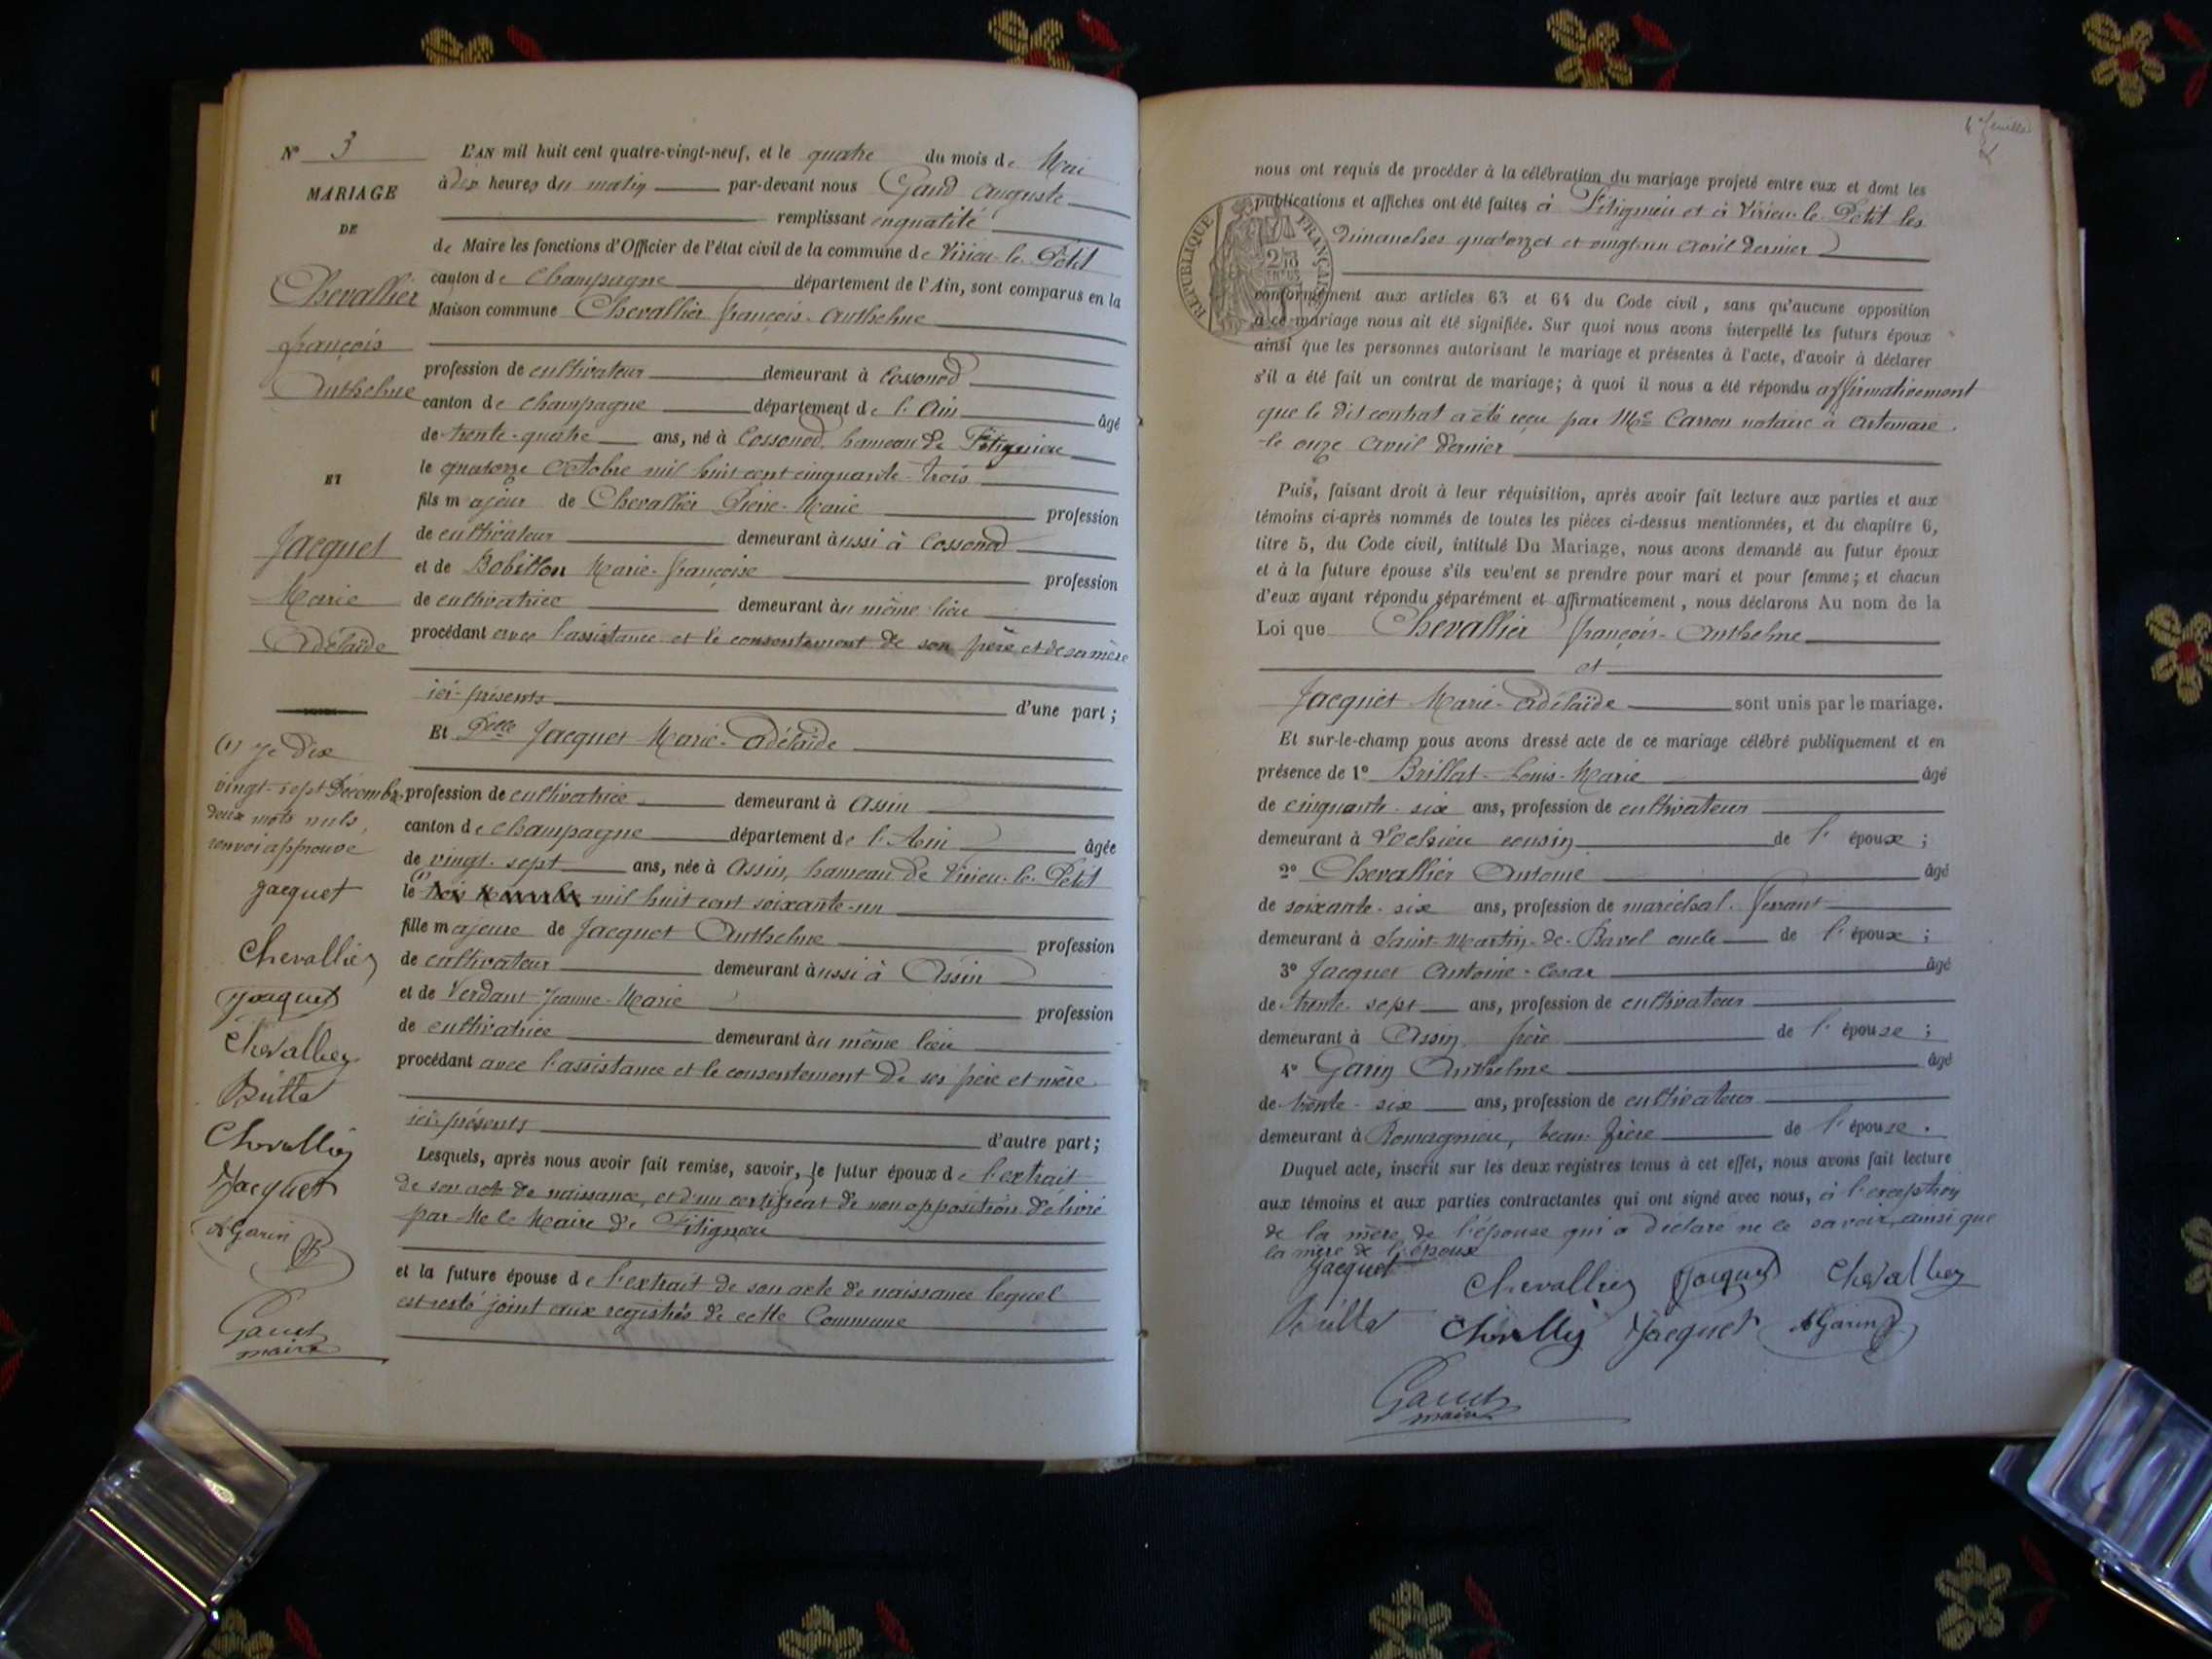 N° 3
MARIAGE
DE
Chevallier
françois
Anthelme
ET
Jacquet
Marie
Adélaïde
(1) je dix
vingt-sept Décembre
deux mots nuls,
renvoi approuvé
Jacquet
Chevallier
Jacquet
Chevallier
Chevallier
Jacquet
A Garin
Gaud
maire
L'AN mil huit cent quatre-vingt-neuf, et le quatre du mois de Mai
à dix heures du matin par-devant nous Gaud Auguste
remplissant en qualité
de Maire les fonctions d'Officier de l'état civil de la commune de Virieu-le-Petit
canton de Champagne département de l'Ain, sont comparus en la
Maison commune Chevallier françois-Anthelme
profession de cultivateur demeurant à Lossonod
canton de Champagne département de l'Ain âgé
de trente-quatre ans, né à Cossonod, hameau de Fitignieu
le quatorze Octobre mil huit cent cinquante-trois
fils majeur de Chevallier Pierre-Marie profession
de cultivateur demeurant aussi à Cossonod
et de Bobillon Marie-françoise profession
de cultivatrice demeurant au même lieu
procédant avec l'assistance et le consentement de son père et de sa mère
ici-présents d'une part ;
Et Delle Jacquet Marie-Adélaïde
profession de cultivatrice demeurant à Assin
canton de Champagne département de l'Ain âgée
de vingt-sept ans, née à Assin, hameau de Virieu-le-Petit
le (1) mil huit cent soixante-un
fille majeure de Jacquet Anthelme profession
de cultivateur demeurant aussi à Assin
et de Verdant Jeanne-Marie profession
de cultivatrice demeurant au même lieu
procédant avec l'assistance et le consentement de ses père et mère
ici-présents d'autre part ;
Lesquels, après nous avoir fait remise, savoir, le futur époux de l'extrait
de son acte de naissance, et d'un certificat de non opposition délivré
par Mr le Maire de Fitignieu
et la future épouse de l'extrait de son acte de naissance lequel
est resté joint aux registres de cette Commune
4e feuille
nous ont requis de procéder à la célébration du mariage projeté entre eux et dont les
publications et affiches ont été faites à Fitignieu et à Virieu-le-Petit les
dimanches quatorze et vingt-un avril dernier
REPUBLIQUE FRANÇAISE
conformément aux articles 63 et 64 du Code civil, sans qu'aucune opposition
à ce mariage nous ait été signifiée. Sur quoi nous avons interpellé les futurs époux
ainsi que les personnes autorisant le mariage et présentes à l'acte, d'avoir à déclarer
s'il a été fait un contrat de mariage ; à quoi il nous a été répondu affirmativement
que le dit contrat a été reçu par Me Carron notaire à Artemare
le onze avril dernier
Puis, faisant droit à leur réquisition, après avoir fait lecture aux parties et aux
témoins ci-après nommés de toutes les pièces ci-dessus mentionnées, et du chapitre 6,
titre 5, du Code civil, intitulé Du Mariage, nous avons demandé au futur époux
et à la future épouse s'ils veulent se prendre pour mari et pour femme ; et chacun
d'eux ayant répondu séparément et affirmativement, nous déclarons Au nom de la
Loi que Chevallier françois-Anthelme
et
Jacquet Marie-Adélaïde sont unis par le mariage.
Et sur-le-champ nous avons dressé acte de ce mariage célébré publiquement et en
présence de 1° Brillat-Louis-Marie âgé
de cinquante-six ans, profession de cultivateur
demeurant à cousin de l'époux ;
2° Chevallier Antoine âgé
de soixante-six ans, profession de maréchal-ferrant
demeurant à Saint-Martin-de-Bavel oncle de l'époux ;
3° Jacquet Antoine-Cesar âgé
de trente-sept ans, profession de cultivateur
demeurant à Assin, frère de l'épouse ;
4° Garin Anthelme âgé
de trente-six ans, profession de cultivateur
demeurant à Romagnieu, beau-frère de l'épouse.
Duquel acte, inscrit sur les deux registres tenus à cet effet, nous avons fait lecture
aux témoins et aux parties contractantes qui ont signé avec nous, à l'exception
de la mère de l'épouse qui a déclaré ne le savoir, ainsi que
la mère de l'époux
Jacquet Chevallier Jacquet Chevallier
Chevallier Jacquet A Garin
Gaud
maire